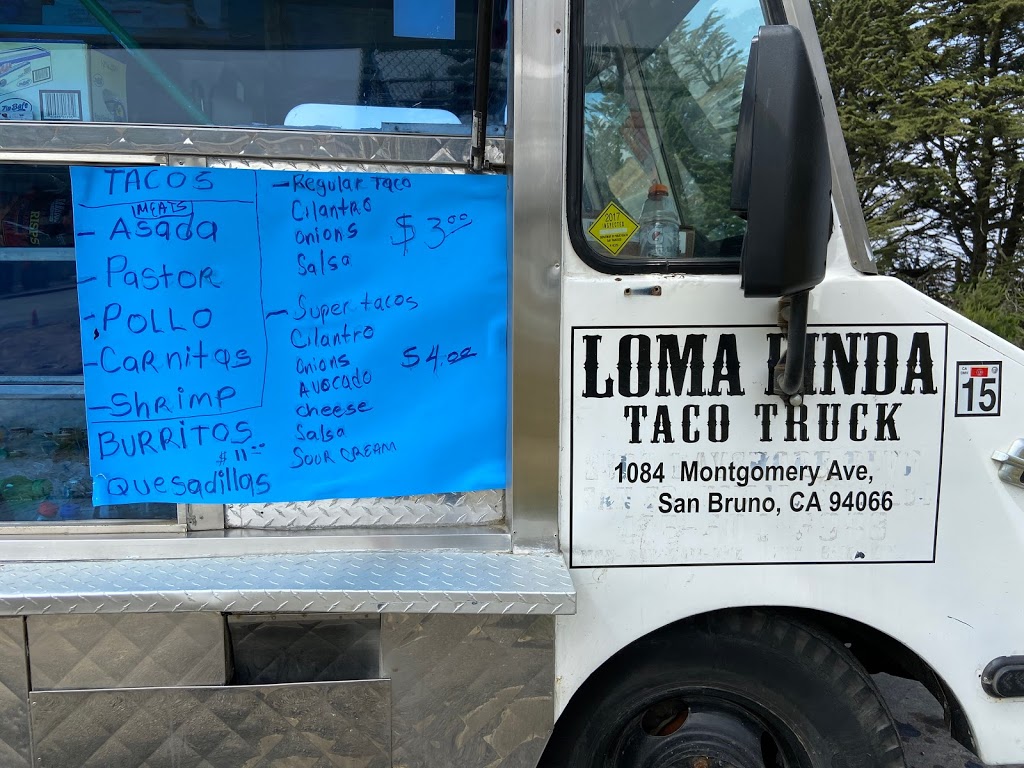 TACOS
MEATS
- Asada
- Pastor
- Pollo
- Carnitas
- Shrimp
BURRITOS
$11.00
Quesadillas
- Regular Taco
Cilantro
onions
$3.00
Salsa
- Super tacos
Cilantro
onions
$4.00
Avocado
cheese
Salsa
Sour cream
2017
INSPECTED
LOMA LINDA
TACO TRUCK
1084 Montgomery Ave,
San Bruno, CA 94066
15